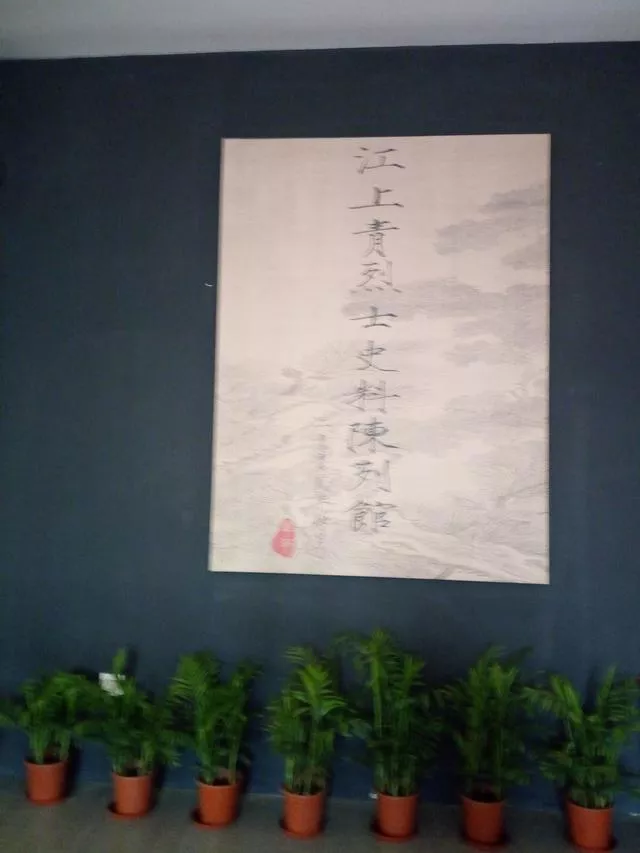 江上青烈士史料陳列館